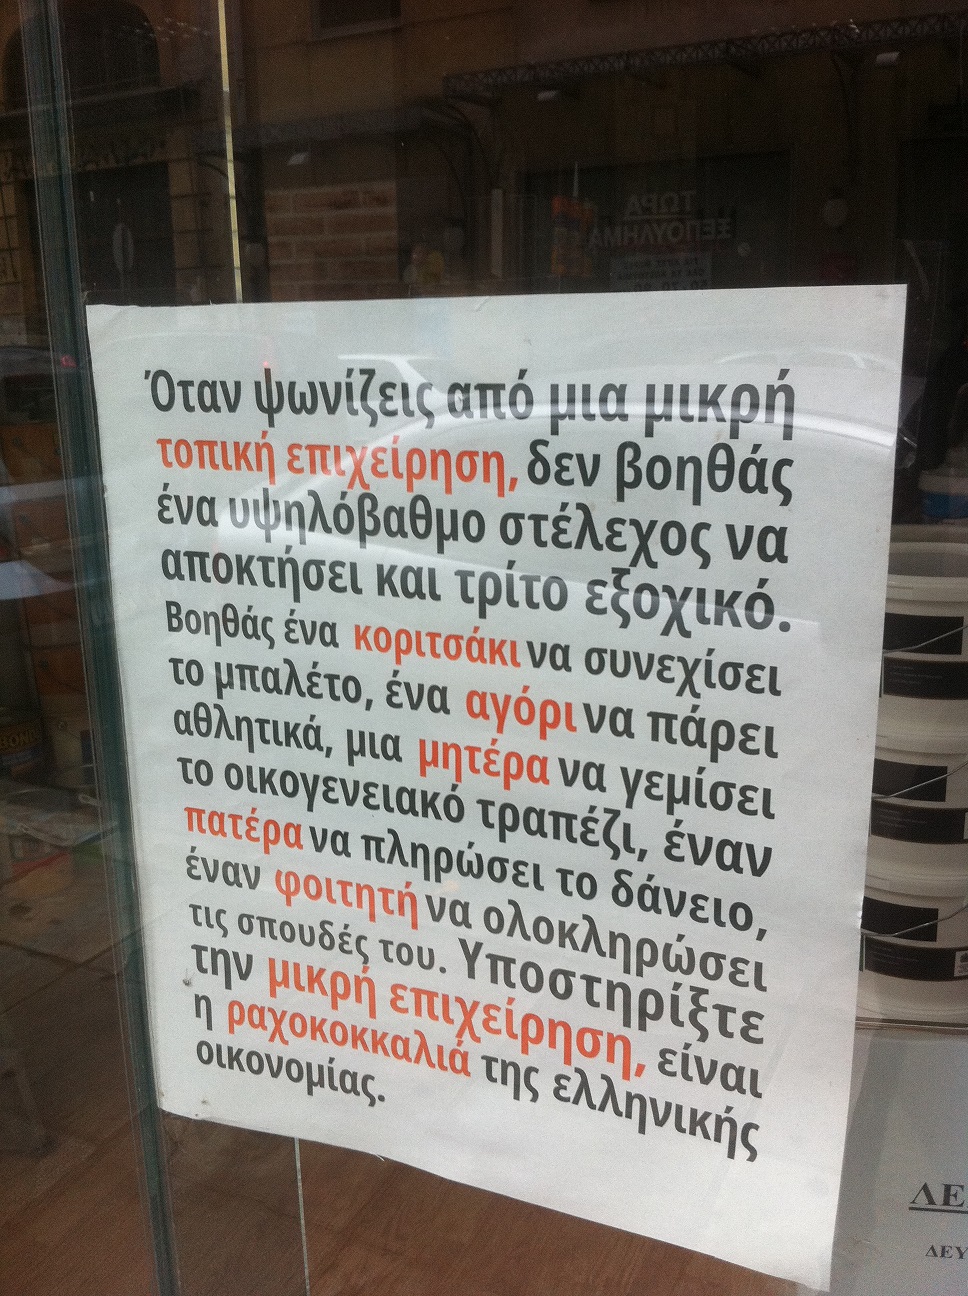 ΤΩΡΑ
ΞΕΠΟΥΛΗΜΑ
Όταν ψωνίζεις από μια μικρή
τοπική επιχείρηση, δεν βοηθάς
ένα υψηλόβαθμο στέλεχος να
αποκτήσει και τρίτο εξοχικό.
Βοηθάς ένα κοριτσάκι να συνεχίσει
το μπαλέτο, ένα αγόρι να πάρει
αθλητικά, μια μητέρα να γεμίσει
το οικογενειακό τραπέζι, έναν
πατέρα να πληρώσει το δάνειο,
έναν φοιτητή να ολοκληρώσει
τις σπουδές του. Υποστηρίξτε
την μικρή επιχείρηση, είναι
η ραχοκοκκαλιά της ελληνικής
οικονομίας.
BOND
ΔΕΥ